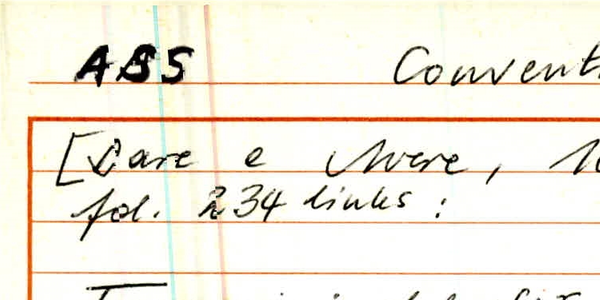 ABS Convent
[Dare e Avere,
fol. 234 links: